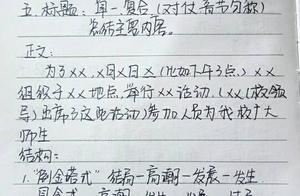 五、标题：单一、复合、(对仗、音节匀称)
总结主要内容。
正文：
为了xx，x月x日x(比如下午3点)，xx
组织于xx地点，举行xx活动，(xx校领
导)出席了这次活动)参加人员为我校广大
师生
结构：
1."倒金塔式" 结局—高潮—发展—发生